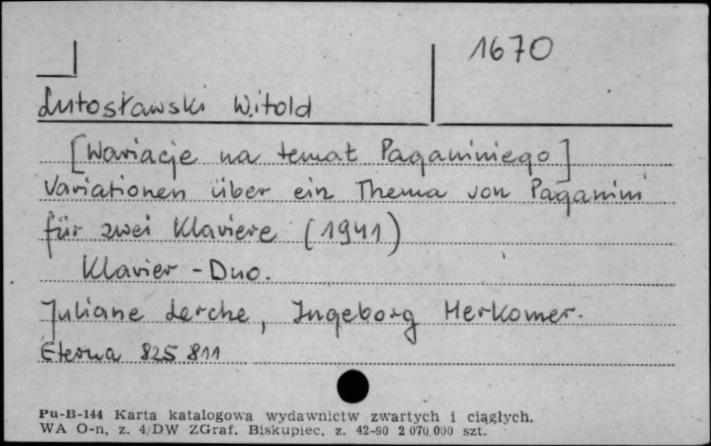 1670
Lutosławski Witold
[Wariacje na temat Paganiniego]
Variationen über ein Thema von Paganini
für zwei Klaviere (1941)
Klavier - Duo.
Juliane Lerche, Ingeborg Herkomer.
Eterna 825 811
Pu-B-144 Karta katalogowa wydawnictw zwartych i ciągłych.
WA O-n, z. 4/DW ZGraf. Biskupiec, z. 42-90 2 070 000 szt.